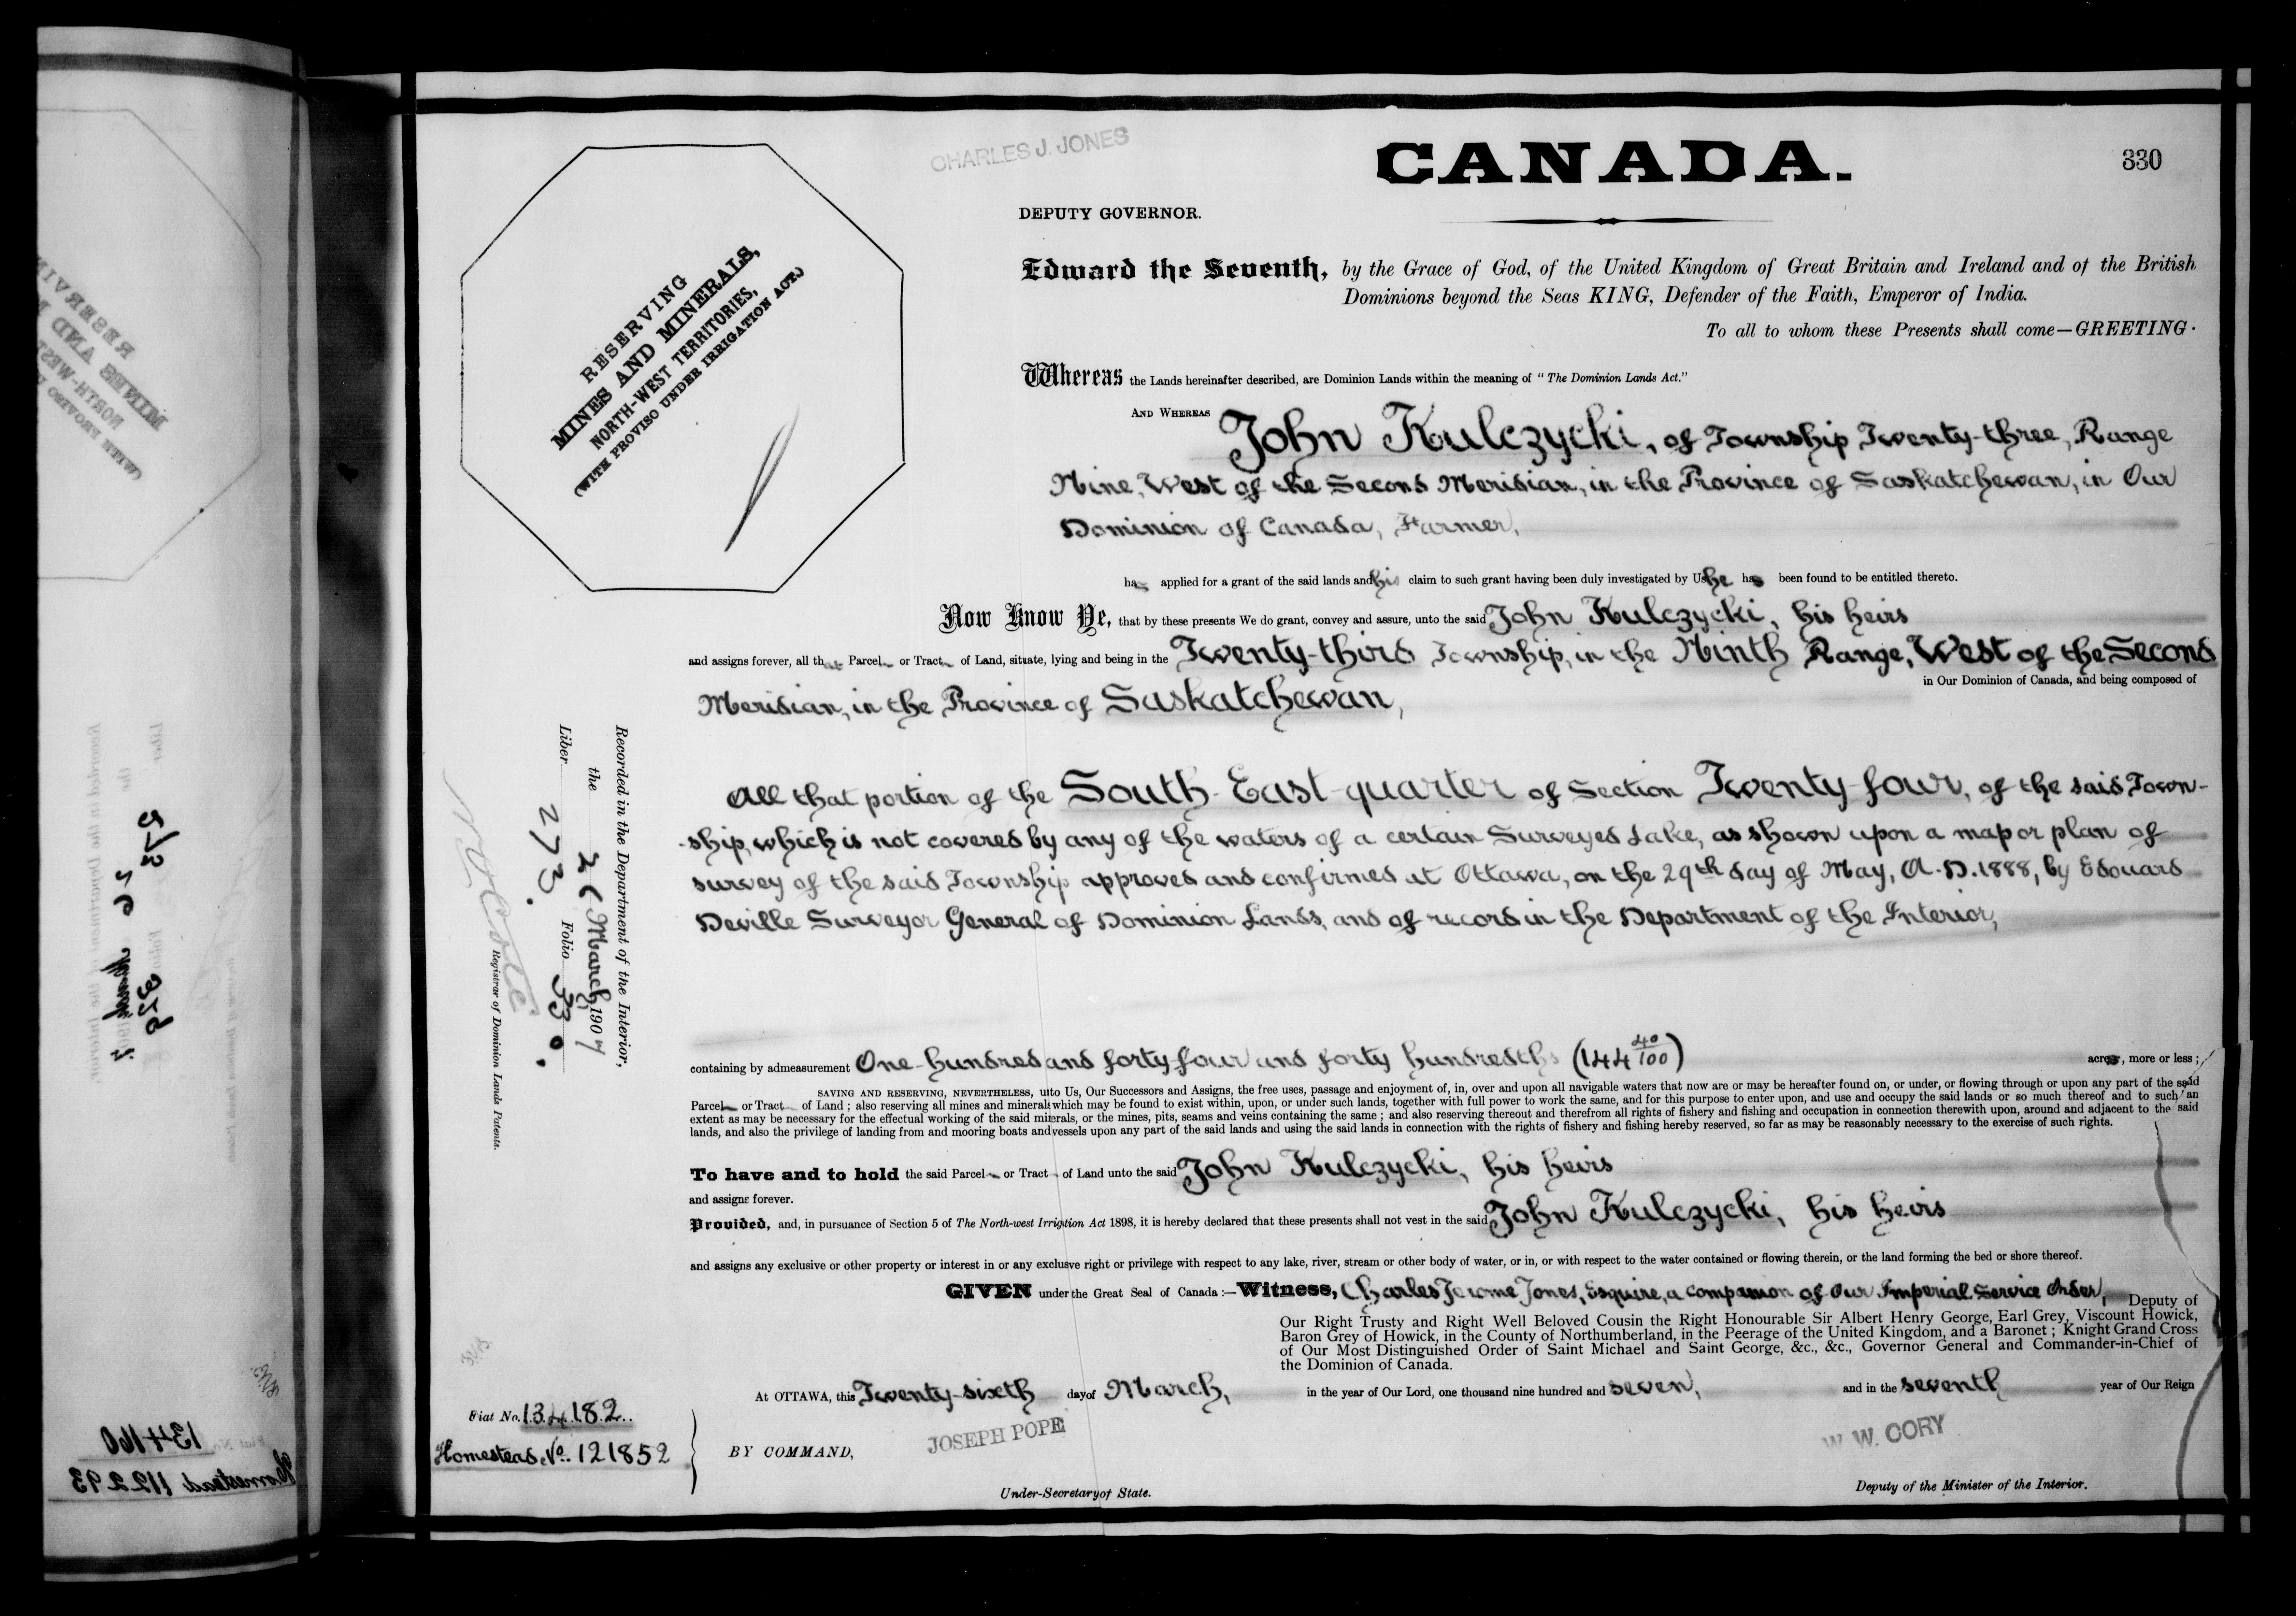 CHARLES J. JONES
CANADA.
330
DEPUTY GOVERNOR.
RESERVING
MINES AND MINERALS,
NORTH-WEST TERRITORIES,
(WITH PROVISO UNDER IRRIGATION ACT.)
Edward the Seventh, by the Grace of God, of the United Kingdom of Great Britain and Ireland and of the British
Dominions beyond the Seas KING, Defender of the Faith, Emperor of India.
To all to whom these Presents shall come—GREETING·
Whereas the Lands hereinafter described, are Dominion Lands within the meaning of "The Dominion Lands Act."
AND WHEREAS John Kulczycki, of Township Twenty-three, Range
Nine, West of the Second Meridian, in the Province of Saskatchewan, in Our
Dominion of Canada, Farmer,
has applied for a grant of the said lands and his claim to such grant having been duly investigated by Us he has been found to be entitled thereto.
Now Know Ye, that by these presents We do grant, convey and assure, unto the said John Kulczycki, his heirs
and assigns forever, all that Parcel or Tract of Land, situate, lying and being in the Twenty-third Township, in the Ninth Range, West of the Second
in Our Dominion of Canada, and being composed of
Meridian, in the Province of Saskatchewan,
All that portion of the South-East-quarter of Section Twenty-four, of the said Town-
-ship, which is not covered by any of the waters of a certain Surveyed Lake, as shown upon a map or plan of
survey of the said Township approved and confirmed at Ottawa, on the 29th day of May, A.D. 1888, by Edouard
Deville Surveyor General of Dominion Lands, and of record in the Department of the Interior,
containing by admeasurement One-hundred and forty-four and forty hundredths (144 40/100) acres, more or less;
SAVING AND RESERVING, NEVERTHELESS, unto Us, Our Successors and Assigns, the free uses, passage and enjoyment of, in, over and upon all navigable waters that now are or may be hereafter found on, or under, or flowing through or upon any part of the said
Parcel or Tract of Land; also reserving all mines and minerals which may be found to exist within, upon, or under such lands, together with full power to work the same, and for this purpose to enter upon, and use and occupy the said lands or so much thereof and to such an
extent as may be necessary for the effectual working of the said minerals, or the mines, pits, seams and veins containing the same; and also reserving thereout and therefrom all rights of fishery and fishing and occupation in connection therewith upon, around and adjacent to the said
lands, and also the privilege of landing from and mooring boats and vessels upon any part of the said lands and using the said lands in connection with the rights of fishery and fishing hereby reserved, so far as may be reasonably necessary to the exercise of such rights.
To have and to hold the said Parcel or Tract of Land unto the said John Kulczycki, his heirs
and assigns forever.
Provided, and, in pursuance of Section 5 of The North-west Irrigation Act 1898, it is hereby declared that these presents shall not vest in the said John Kulczycki, his heirs
and assigns any exclusive or other property or interest in or any exclusve right or privilege with respect to any lake, river, stream or other body of water, or in, or with respect to the water contained or flowing therein, or the land forming the bed or shore thereof.
GIVEN under the Great Seal of Canada:—Witness, Charles Jerome Jones, Esquire, a companion of Our Imperial Service Order, Deputy of
Our Right Trusty and Right Well Beloved Cousin the Right Honourable Sir Albert Henry George, Earl Grey, Viscount Howick,
Baron Grey of Howick, in the County of Northumberland, in the Peerage of the United Kingdom, and a Baronet; Knight Grand Cross
of Our Most Distinguished Order of Saint Michael and Saint George, &c., &c., Governor General and Commander-in-Chief of
the Dominion of Canada.
At OTTAWA, this Twenty-sixth day of March, in the year of Our Lord, one thousand nine hundred and seven, and in the seventh year of Our Reign
BY COMMAND,
JOSEPH POPE
Under-Secretary of State.
W. W. CORY
Deputy of the Minister of the Interior.
Recorded in the Department of the Interior,
the 26 March, 1907
Liber 273. Folio 330.
Registrar of Dominion Lands Patents.
Fiat No. 134182..
Homestead No. 121852
134160
Homestead 112293